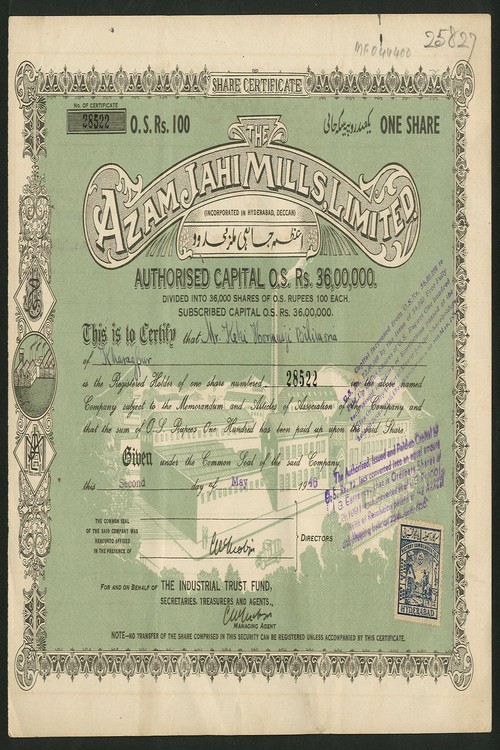 25827
MF044400
SHARE CERTIFICATE
No. OF CERTIFICATE
28522 O.S. Rs. 100
ONE SHARE
THE
AZAM JAHI MILLS, LIMITED.
(INCORPORATED IN HYDERABAD, DECCAN)
اعظم جاہی ملز محدود
AUTHORISED CAPITAL O.S. Rs. 36,00,000.
DIVIDED INTO 36,000 SHARES OF O.S. RUPEES 100 EACH.
SUBSCRIBED CAPITAL O.S. Rs. 36,00,000.
This is to Certify that Mr. Keki Hormusji Bilimoria
of Kharagpur
is the Registered Holder of one share numbered 28522 in the above named
Company subject to the Memorandum and Articles of Association of the Company and
that the sum of O.S. Rupees One Hundred has been paid up upon the said Share.
Given under the Common Seal of the said Company
this Second day of May 1946
The Authorised, Issued and Paidup Capital of
THE COMMON SEAL
OF THE SAID COMPANY WAS
HEREUNTO AFFIXED
IN THE PRESENCE OF
DIRECTORS
FOR AND ON BEHALF OF THE INDUSTRIAL TRUST FUND,
SECRETARIES, TREASURERS AND AGENTS.,
MANAGING AGENT
HYDERABAD
NOTE—NO TRANSFER OF THE SHARE COMPRISED IN THIS SECURITY CAN BE REGISTERED UNLESS ACCOMPANIED BY THIS CERTIFICATE.